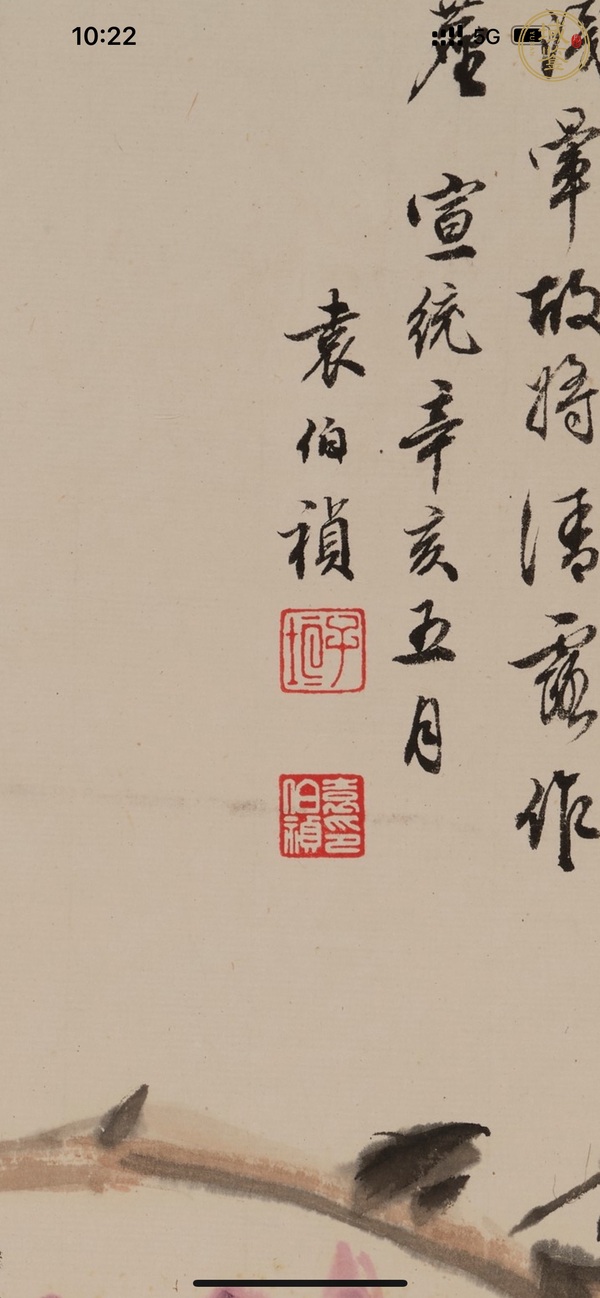 10:22
5G
暈故將清露作
塵 宣統辛亥五月
袁伯禎
袁印伯禎